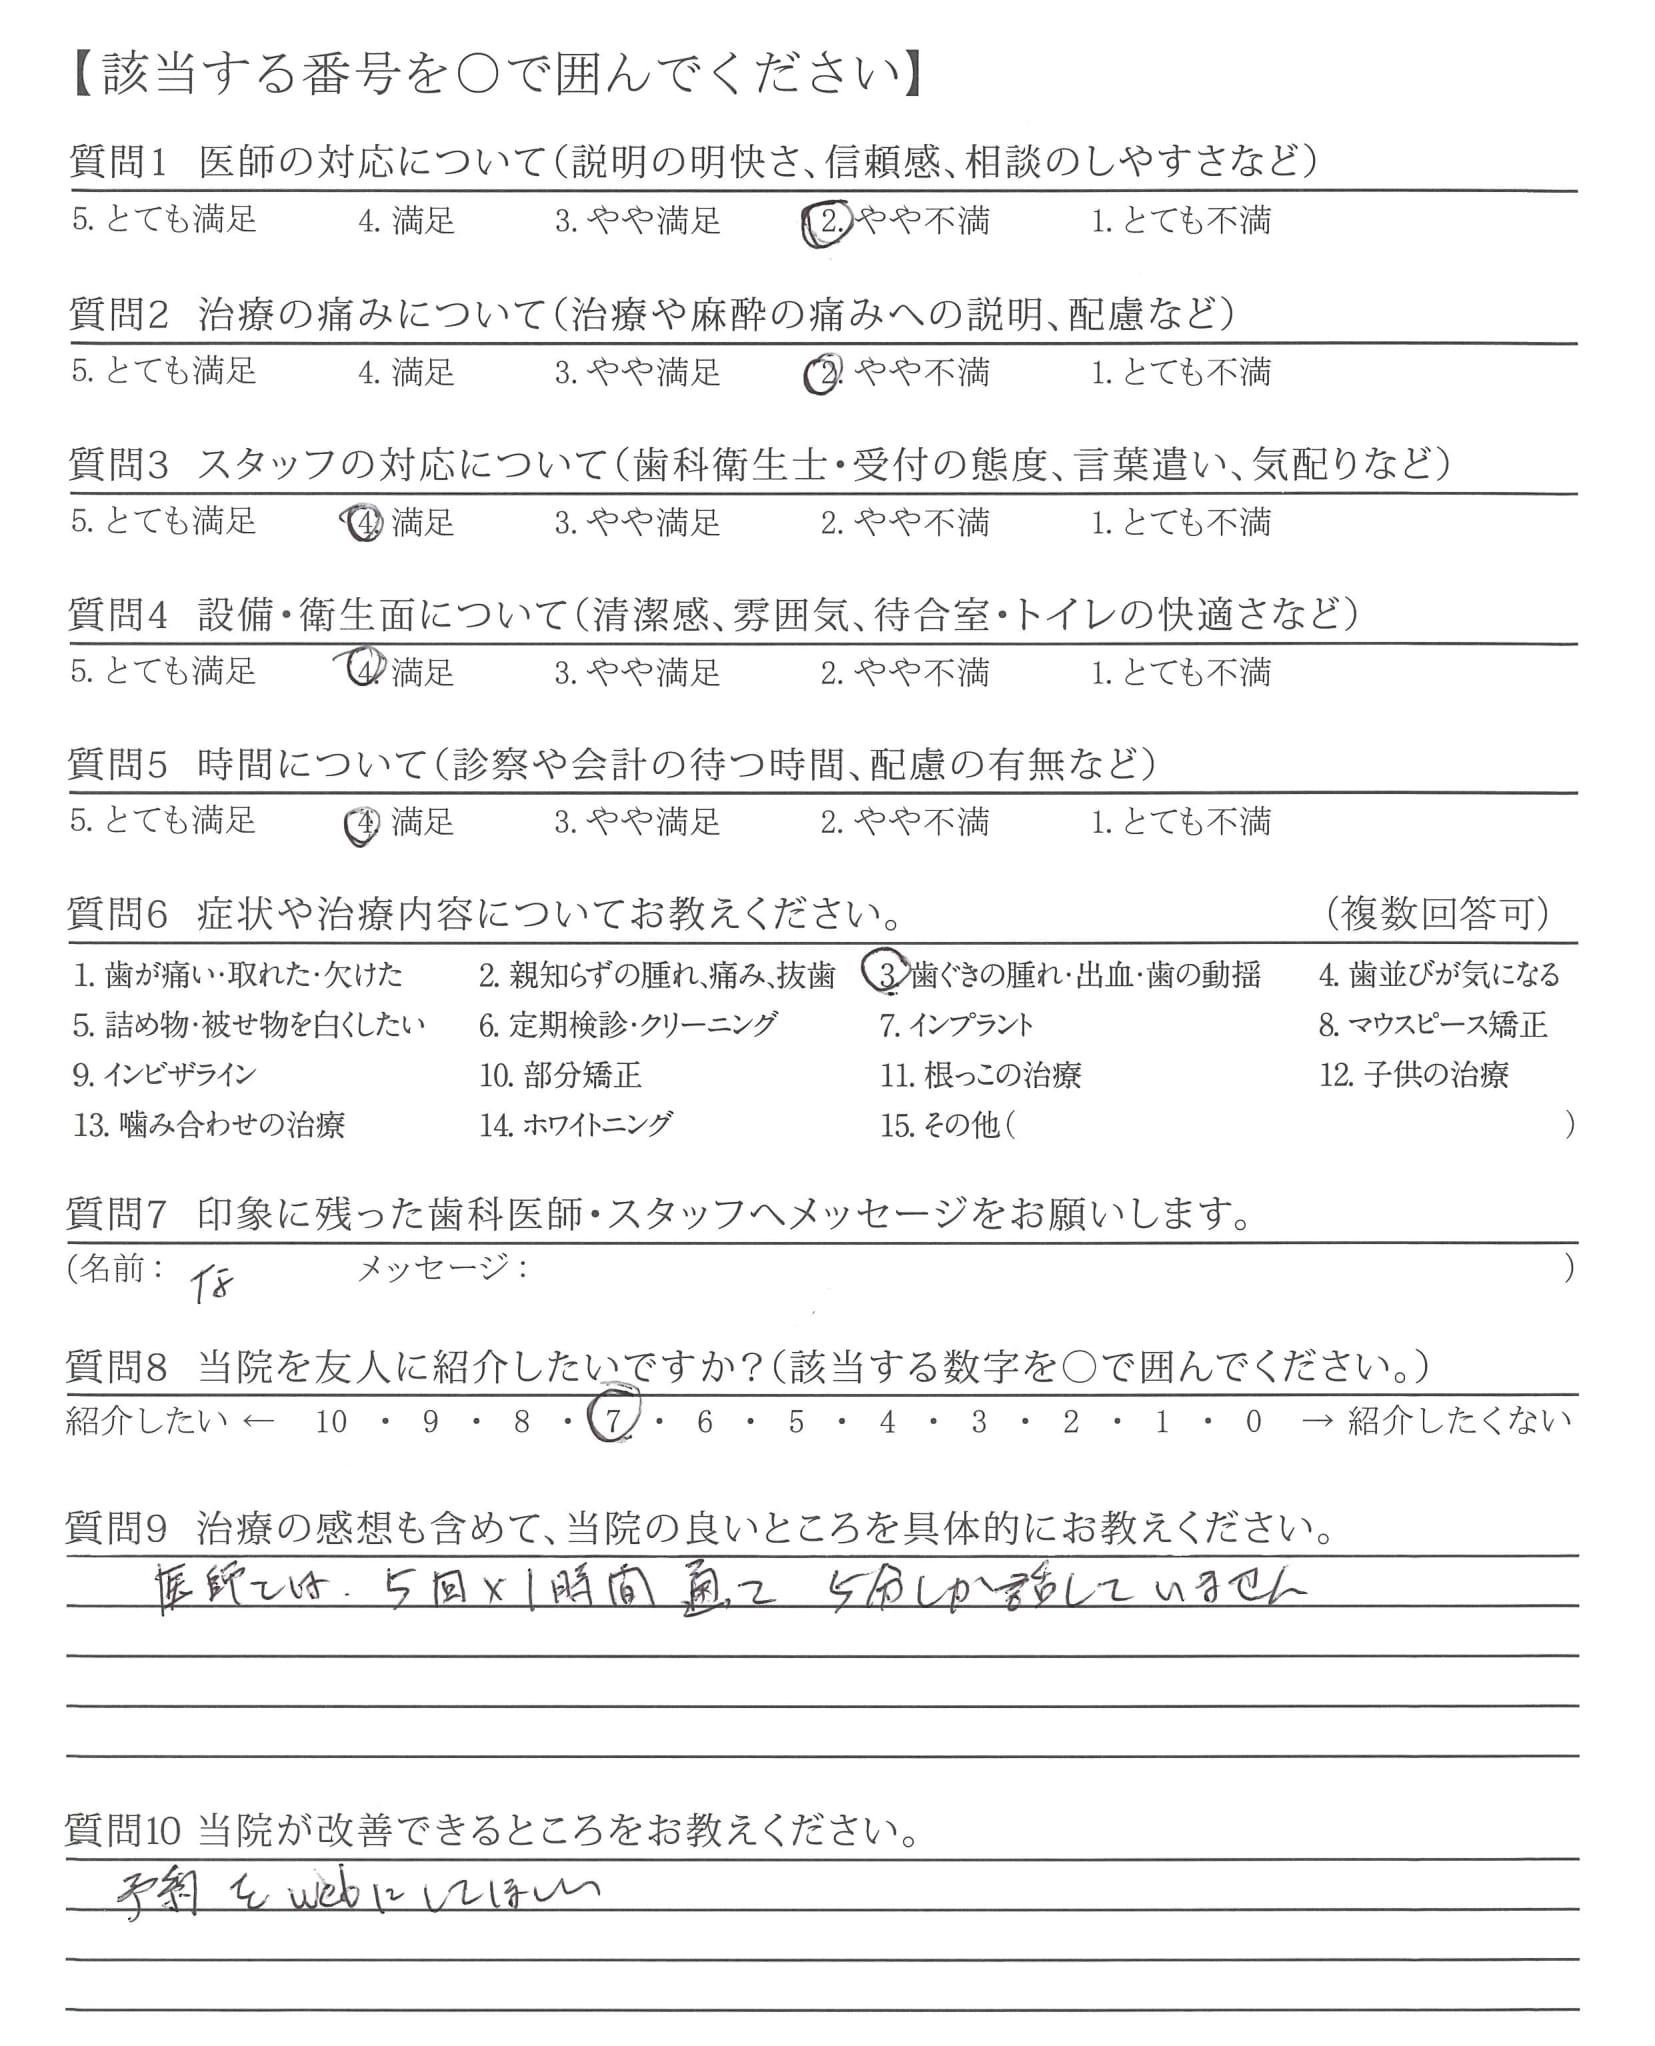 【該当する番号を○で囲んでください】
質問1 医師の対応について(説明の明快さ、信頼感、相談のしやすさなど)
5. とても満足 4. 満足 3. やや満足 2. やや不満 1. とても不満
質問2 治療の痛みについて(治療や麻酔の痛みへの説明、配慮など)
5. とても満足 4. 満足 3. やや満足 2. やや不満 1. とても不満
質問3 スタッフの対応について(歯科衛生士・受付の態度、言葉遣い、気配りなど)
5. とても満足 4. 満足 3. やや満足 2. やや不満 1. とても不満
質問4 設備・衛生面について(清潔感、雰囲気、待合室・トイレの快適さなど)
5. とても満足 4. 満足 3. やや満足 2. やや不満 1. とても不満
質問5 時間について(診察や会計の待つ時間、配慮の有無など)
5. とても満足 4. 満足 3. やや満足 2. やや不満 1. とても不満
質問6 症状や治療内容についてお教えください。 (複数回答可)
1. 歯が痛い・取れた・欠けた 2. 親知らずの腫れ、痛み、抜歯 3. 歯ぐきの腫れ・出血・歯の動揺 4. 歯並びが気になる
5. 詰め物・被せ物を白くしたい 6. 定期検診・クリーニング 7. インプラント 8. マウスピース矯正
9. インビザライン 10. 部分矯正 11. 根っこの治療 12. 子供の治療
13. 噛み合わせの治療 14. ホワイトニング 15. その他( )
質問7 印象に残った歯科医師・スタッフへメッセージをお願いします。
(名前: メッセージ: )
質問8 当院を友人に紹介したいですか?(該当する数字を○で囲んでください。)
紹介したい ← 10 ・ 9 ・ 8 ・ 7 ・ 6 ・ 5 ・ 4 ・ 3 ・ 2 ・ 1 ・ 0 → 紹介したくない
質問9 治療の感想も含めて、当院の良いところを具体的にお教えください。
医師とは、5回×1時間 通って 5分しか話していません
質問10 当院が改善できるところをお教えください。
予約をwebにしてほしい